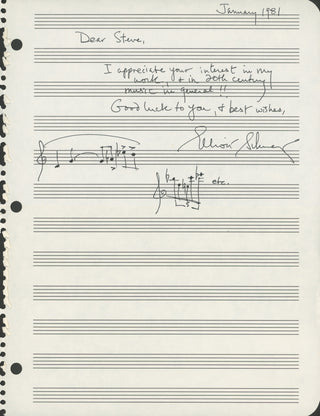 January 1981
Dear Steve,
I appreciate your interest in my
work, & in 20th century
music in general!!
Good luck to you, & best wishes,
Elliott Schwartz
etc.